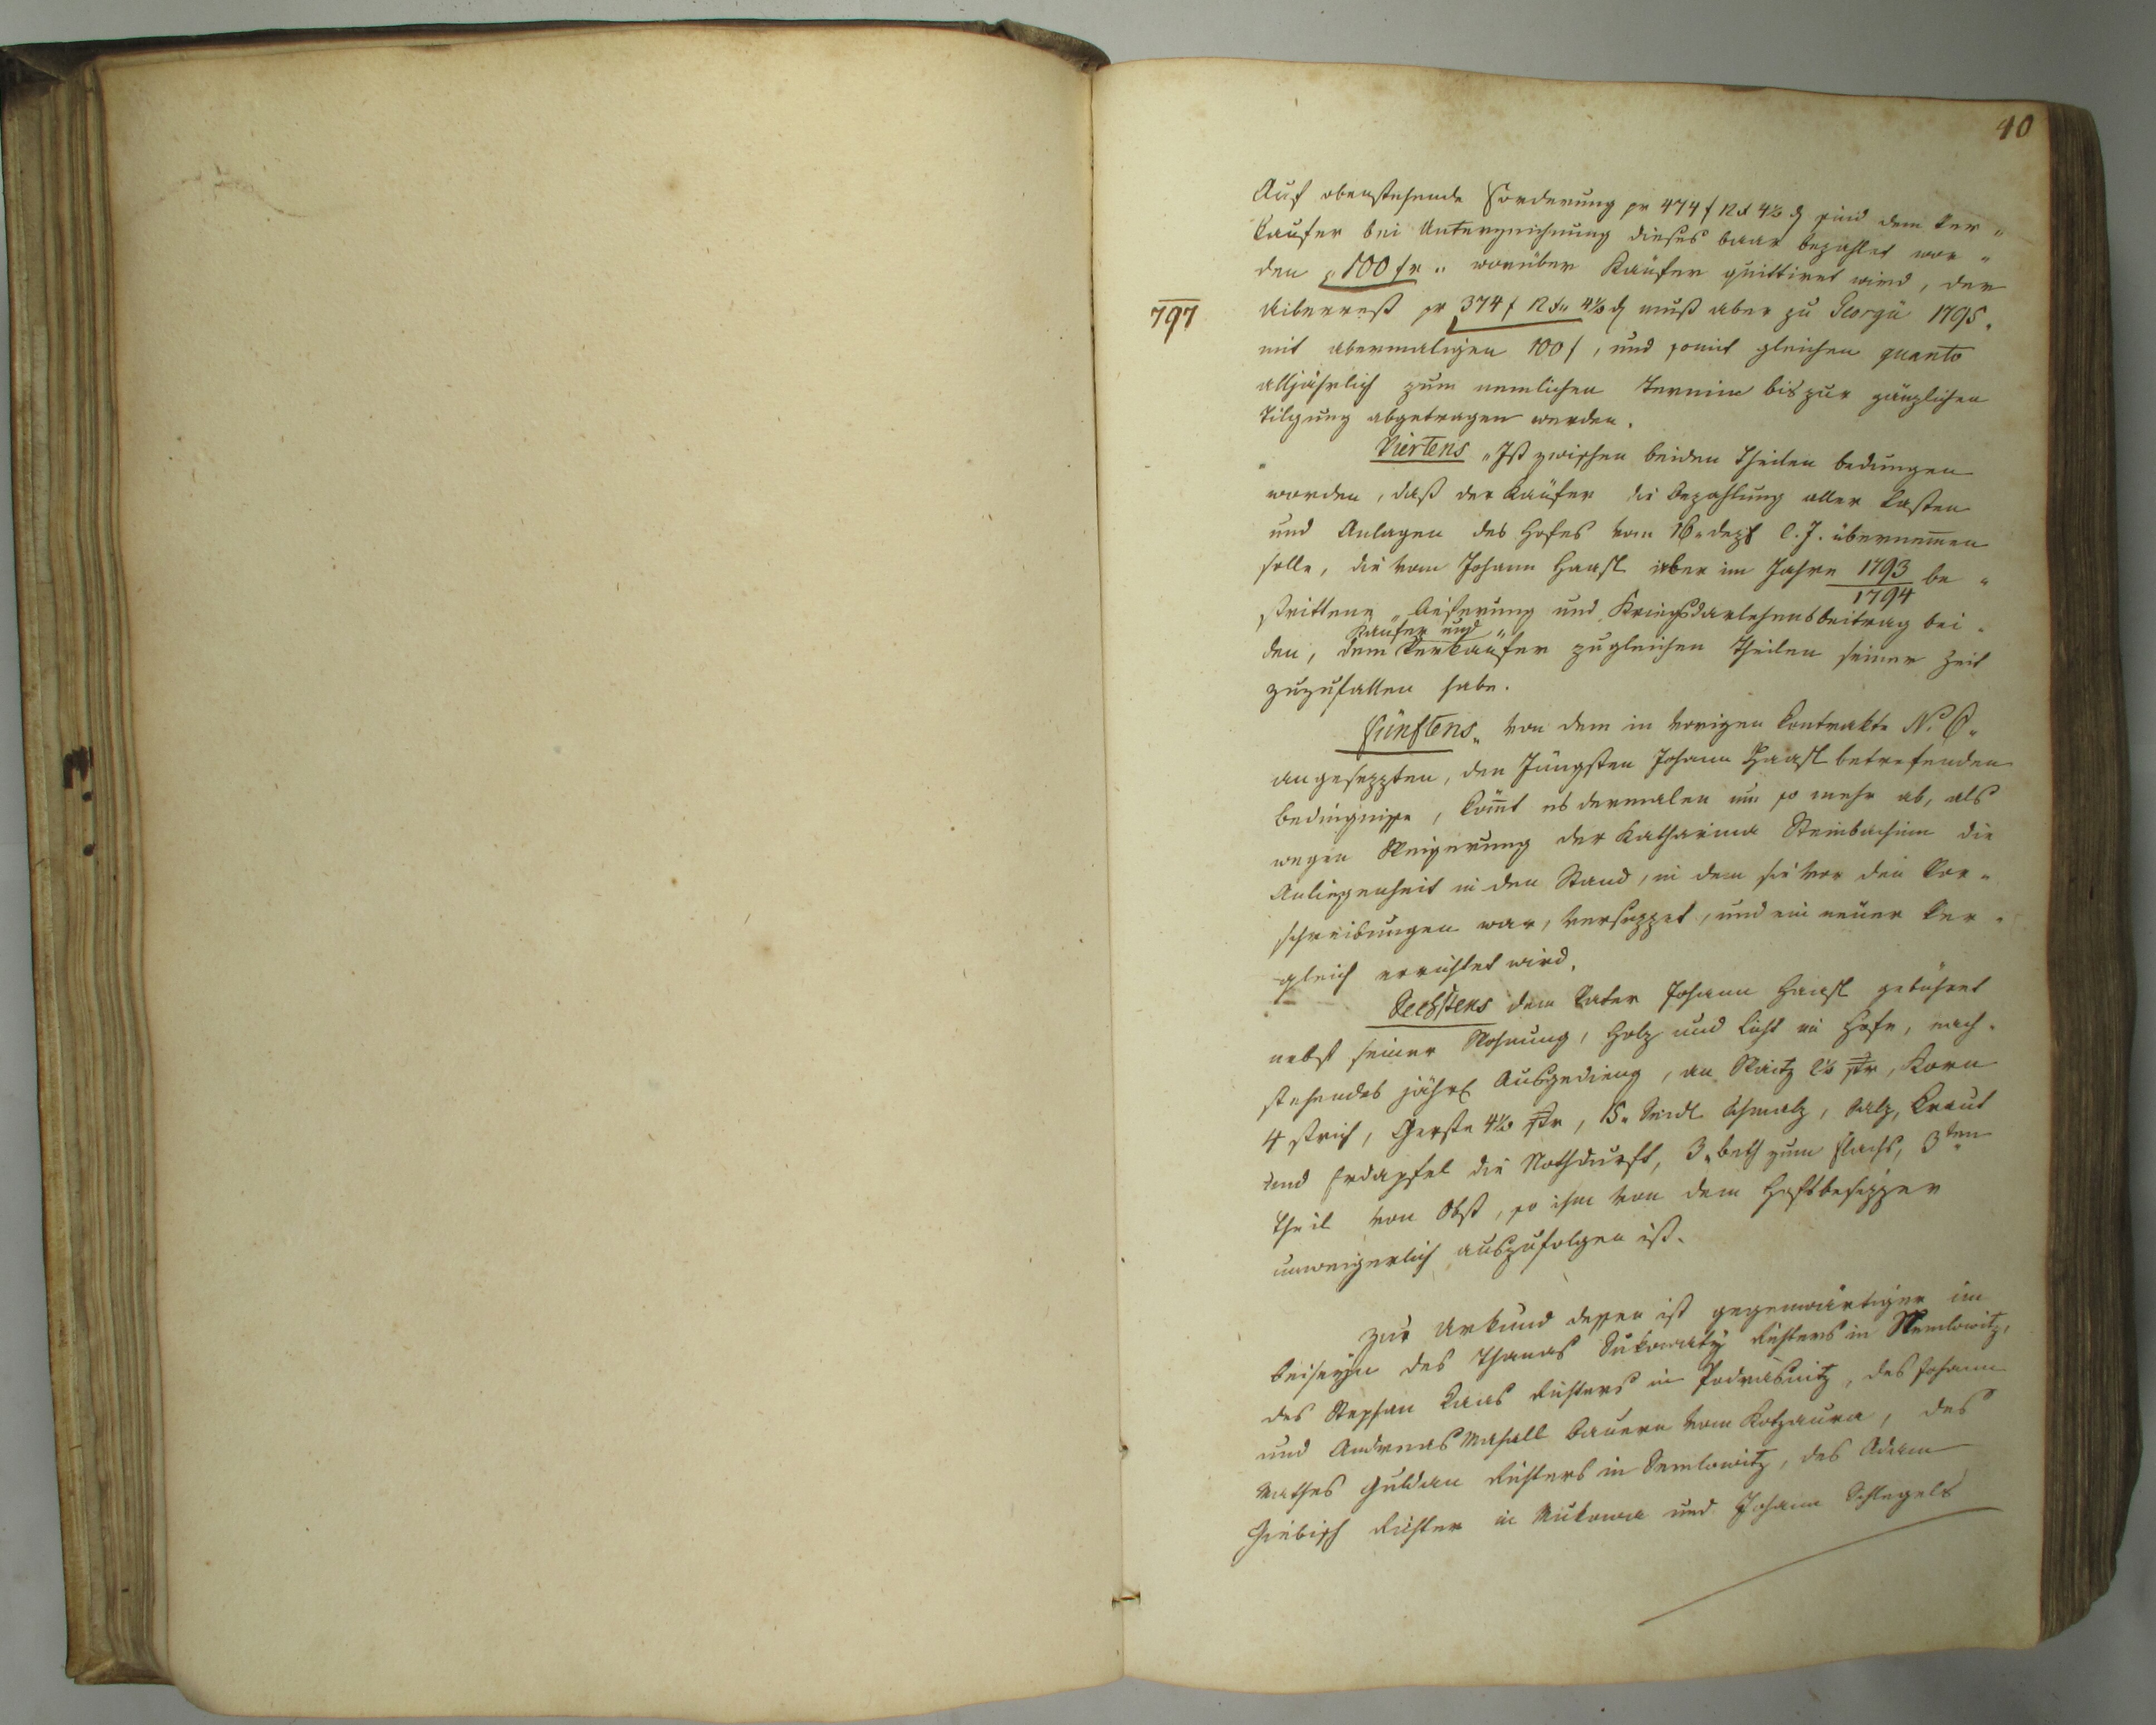 40
Auf obenstehende Forderung pr 474 f 12 x 4½ d sind dem Ver„
kaufer bei Unterzeichnung dieses baar bezahlet wor„
den „100 fr„ worüber Kaüfer quittiret wird, der
797
Uiberrest pr 374 f 12 x„ 4½ d muß aber zu Georgii 1795„
mit abermaligen 100 f, und somit gleichen quanto
alljährlich zum nemlichen Termin bis zur gänzlichen
Tilgung abgetragen werden.
Viertens „Ist zwischen beiden Theilen bedungen
worden, daß der Kaüfer die Bezahlung aller Lasten
und Anlagen des Hofes vom 16„ l. J. übernem̄en
solle, die vom Johann Haasl aber im Jahre 1793/1794 be„
strittene Lieferung und Kriegsdarlehensbeitrag bei„
den, dem Kaüfer und Verkaüfer zu gleichen Theilen seiner Zeit
zuzufallen habe.
Fünftens„ von dem in vorigen Contrakte N.o
angesezzten, den Jüngsten Johann Haasl betrefenden
Bedingnisse, köm̄t es dermalen um so mehr ab, als
wegen Weigerung der Katharina Steinbachinn die
Anliegenheit in den Stand, in dem sie vor den Vor„
schreibungen war, versezzet, und ein neuer Ver„
gleich errichtet wird.
Sechstens dem Vater Johann Haasl gebühret
nebst seiner Wohnung, Holz und Licht im Hofe, nach„
stehendes jährl Ausgedieng, an Waitz str, Korn
4 strich, Gerste 4½ str, 15„ Seidl Schmalz, Salz, Kraut
und Erdapfel die Nothdurft, 3„ beth zum Flachs, 3ten
Theil von Obst, so ihm von dem Hofsbesizzer
unweigerlich auszufolgen ist.
Zur Urkund dessen ist gegenwärtiger im
Beiseÿn des Thomas Sukowatÿ Richters in Wemlowitz,
des Stephan Richters in Podrasnitz, des Johann
und Andreas Mahall Bauern vom Kotzaura, des
Mathes Guldan Richters in Semlowitz, des Adam
Giebisch Richter in Mukowa und Johann Schlegels